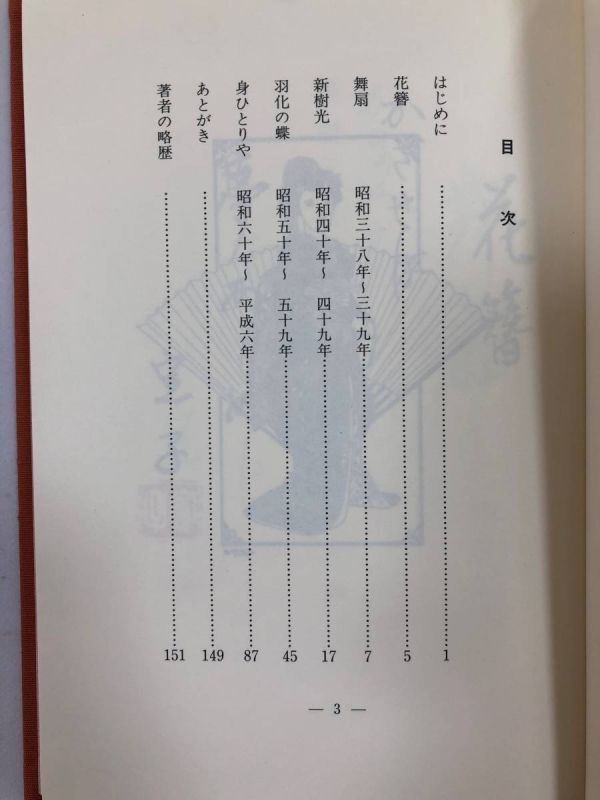 目次
はじめに……1
花簪……5
舞扇 昭和三十八年〜三十九年……7
新樹光 昭和四十年〜四十九年……17
羽化の蝶 昭和五十年〜五十九年……45
身ひとりや 昭和六十年〜平成六年……87
あとがき……149
著者の略歴……151
— 3 —
花簪